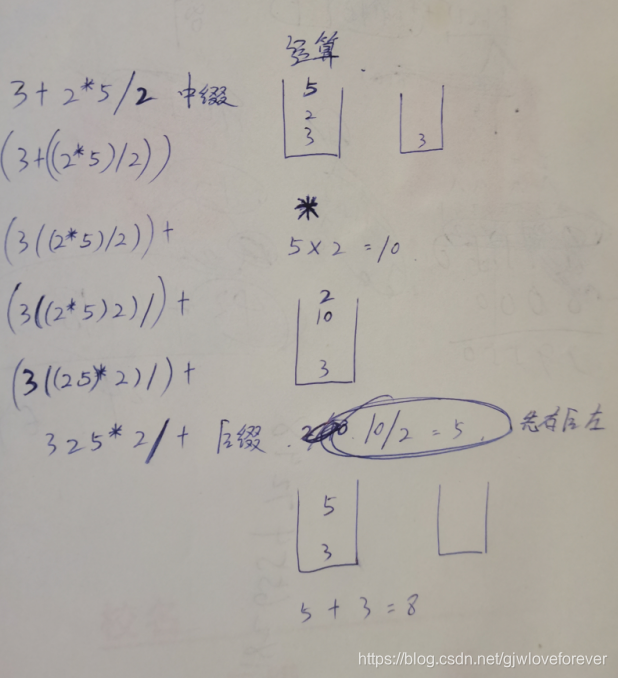 3 + 2*5/2 中缀
(3+((2*5)/2))
(3((2*5)/2))+
(3((2*5)2)/)+
(3((25)*2)/)+
325*2/+ 后缀
运算
5
2
3
3
*
5×2=10
2
10
3
10/2=5
先右后左
5
3
5+3=8
https://blog.csdn.net/gjwloveforever